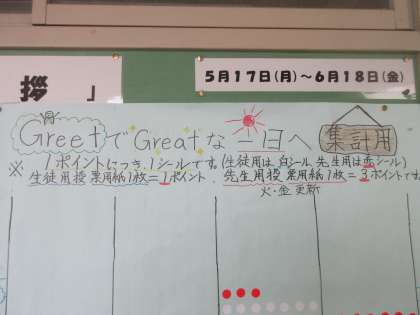 拶 」
5月17日(月)～6月18日(金)
GreetでGreatな一日へ 集計用
※ 1ポイントにつき、1シールです。(生徒用は白シール、先生用は赤シール)
生徒用投票用紙1枚=1ポイント、先生用投票用紙1枚=3ポイントです
火・金 更新